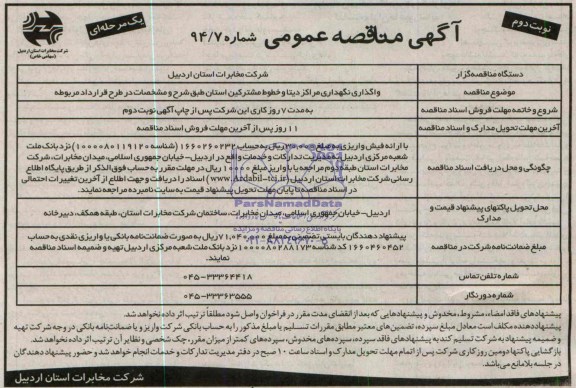 نوبت دوم
آگهی مناقصه عمومی شماره ۹۴/۷
یک مرحله‌ای
شرکت مخابرات استان اردبیل
(سهامی خاص)
دستگاه مناقصه‌گزار
شرکت مخابرات استان اردبیل
موضوع مناقصه
واگذاری نگهداری مراکز دیتا و خطوط مشترکین استان طبق شرح و مشخصات در طرح قرارداد مربوطه
شروع و خاتمه مهلت فروش اسناد مناقصه
به مدت ۷ روز کاری این شرکت پس از چاپ آگهی نوبت دوم
آخرین مهلت تحویل مدارک و اسناد مناقصه
۱۱ روز پس از آخرین مهلت فروش اسناد مناقصه
چگونگی و محل دریافت اسناد مناقصه
با ارائه فیش واریزی به مبلغ ریال به حساب ۱۶۶۰۲۶۰۲۳۲ (شناسه ۱۰۰۰۰۸۰۱۱۹۱۲۰) نزد بانک ملت
شعبه مرکزی اردبیل به مدیریت تدارکات و خدمات واقع در اردبیل- خیابان جمهوری اسلامی، میدان مخابرات، شرکت
مخابرات استان طبقه دوم مراجعه یا با واریز مبلغ ریال در مهلت مقرر به حساب فوق الذکر از طریق پایگاه اطلاع
رسانی شرکت مخابرات استان اردبیل اسناد را دریافت و جهت اطلاع از آخرین تغییرات احتمالی
در اسناد مناقصه تا پایان مهلت تحویل پیشنهاد قیمت به سایت نامبرده مراجعه نمایند.
محل تحویل پاکتهای پیشنهاد قیمت و مدارک
اردبیل- خیابان جمهوری اسلامی، میدان مخابرات، ساختمان شرکت مخابرات استان، طبقه همکف، دبیرخانه
مبلغ ضمانت‌نامه شرکت در مناقصه
پیشنهاد دهندگان بایستی تضمینی به مبلغ ریال به صورت ضمانت‌نامه بانکی یا واریزی نقدی به حساب
۱۶۶۰۴۶۰۴۵۲ کد شناسه ۱۰۰۰۰۸۰۲۸۸۱۷۳ نزد بانک ملت شعبه مرکزی اردبیل تهیه و ضمیمه اسناد مناقصه
نمایند.
شماره تلفن تماس
۰۴۵-۳۳۳۶۴۴۱۸
شماره دورنگار
۰۴۵-۳۳۳۶۳۵۵۵
ParsNamadData
پایگاه اطلاع رسانی مناقصه و مزایده
پیشنهادهای فاقد امضاء، مشروط، مخدوش و پیشنهادهایی که بعد از انقضای مدت مقرر در فراخوان واصل شود مطلقاً ترتیب اثر داده نخواهد شد.
پیشنهاددهنده مکلف است معادل مبلغ سپرده، تضمین‌های معتبر مطابق مقررات تسلیم یا مبلغ مذکور را به حساب بانکی شرکت واریز و یا ضمانت‌نامه بانکی در وجه شرکت تهیه
و ضمیمه پیشنهاد به شرکت تسلیم کند به پیشنهادهای فاقد سپرده، سپرده‌های مخدوش، سپرده‌های کمتر از میزان مقرر، چک شخصی و نظایر آن ترتیب اثر داده نخواهد شد.
بازگشایی پاکتها دومین روز کاری شرکت پس از اتمام مهلت تحویل مدارک و اسناد ساعت ۱۰ صبح در دفتر مدیریت تدارکات و خدمات انجام خواهد شد و حضور پیشنهاد دهندگان
در جلسه بلامانع می‌باشد.
شرکت مخابرات استان اردبیل